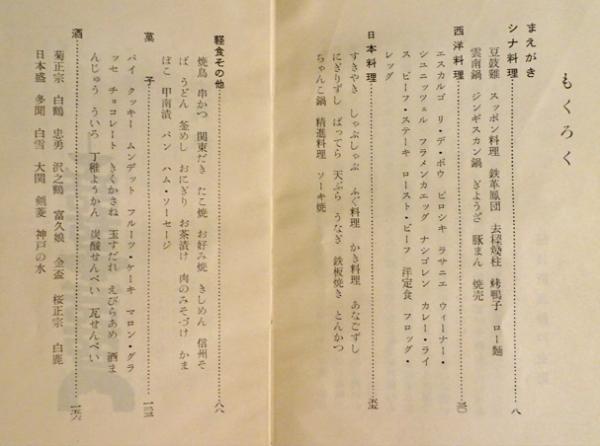 もくろく
まえがき
シナ料理……八
豆豉雞　スッポン料理　鉄革鳳団　去檪燒柱　烤鴨子　ロー麺
雲南鍋　ジンギスカン鍋　ぎょうざ　豚まん　焼売
西洋料理……三〇
エスカルゴ　リ・デ・ボウ　ピロシキ　ラザニエ　ウィーナー・
シュニッツェル　フラメンカエッグ　ナシゴレン　カレー・ライ
ス　ビーフ・ステーキ　ロースト・ビーフ　洋定食　フロッグ・
レッグ
日本料理……五五
すきやき　しゃぶしゃぶ　ふぐ料理　かき料理　あなごずし
にぎりずし　ばってら　天ぷら　うなぎ　鉄板焼き　とんかつ
ちゃんこ鍋　精進料理　ソーキ焼
軽食その他……八八
焼鳥　串かつ　関東だき　たこ焼　お好み焼　きしめん　信州そ
ば　うどん　釜めし　おにぎり　お茶漬け　肉のみそづけ　かま
ぼこ　甲南漬　パン　ハム・ソーセージ
菓子……一二三
パイ　クッキー　ムンデット　フルーツ・ケーキ　マロン・グラ
ッセ　チョコレート　きくかさね　玉すだれ　えびらあめ　酒ま
んじゅう　ういろ　丁稚ようかん　炭酸せんべい　瓦せんべい
酒……一五六
菊正宗　白鶴　忠勇　沢之鶴　富久娘　金盃　桜正宗　白鹿
日本盛　多聞　白雪　大関　剣菱　神戸の水